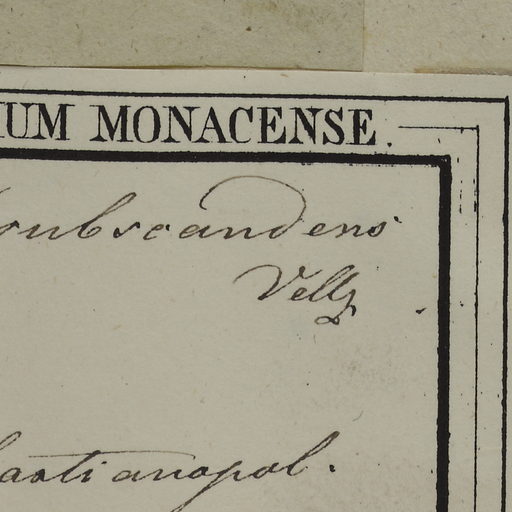 IUM MONACENSE.
subscandens
Vell.
bastianopol.